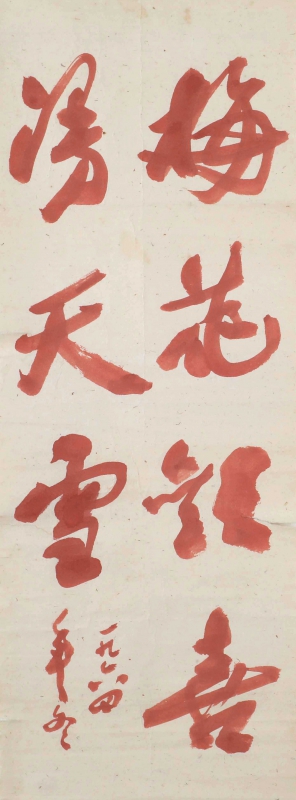 梅花欢喜
漫天雪
一九六四
年冬